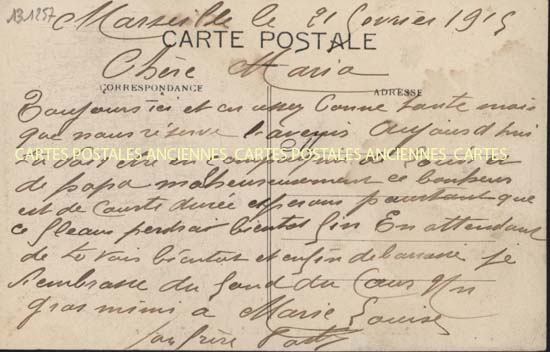 131257
Marseille le 21 fevrier 1915
CARTE POSTALE
Chère Maria
CORRESPONDANCE
ADRESSE
Toujours ici et en assez bonne santé mais
que nous réserve l'avenir Aujourd'hui
CARTES POSTALES ANCIENNES CARTES POSTALES ANCIENNES CARTES
de papa malheureusement ce bonheur
est de courte durée espérons pourtant que
ce fleau perdrait bientot fin En attendant
de te voir bientot et enfin debarrassé je
t'embrasse du fond du Cœur Un
gros mimi à Marie Louise
ton frère